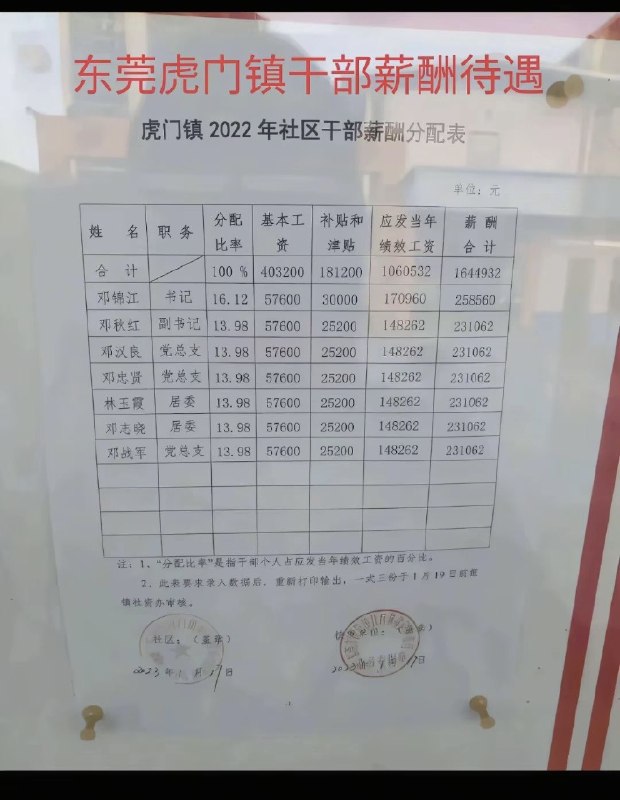 东莞虎门镇干部薪酬待遇
虎门镇 2022 年社区干部薪酬分配表
单位：元
姓 名 职 务 分配比率 基本工资 补贴和津贴 应发当年绩效工资 薪 酬合 计
合 计 100 % 403200 181200 1060532 1644932
邓锦江 书记 16.12 57600 30000 170960 258560
邓秋红 副书记 13.98 57600 25200 148262 231062
邓汉良 党总支 13.98 57600 25200 148262 231062
邓忠贤 党总支 13.98 57600 25200 148262 231062
林玉霞 居委 13.98 57600 25200 148262 231062
邓志晓 居委 13.98 57600 25200 148262 231062
邓战军 党总支 13.98 57600 25200 148262 231062
注：1、“分配比率”是指干部个人占应发当年绩效工资的百分比。
2、此表要求录入数据后，重新打印输出，一式三份于 1 月 19 日前报
镇社资办审核。
社区：（盖章）
2023 年 1 月 17 日